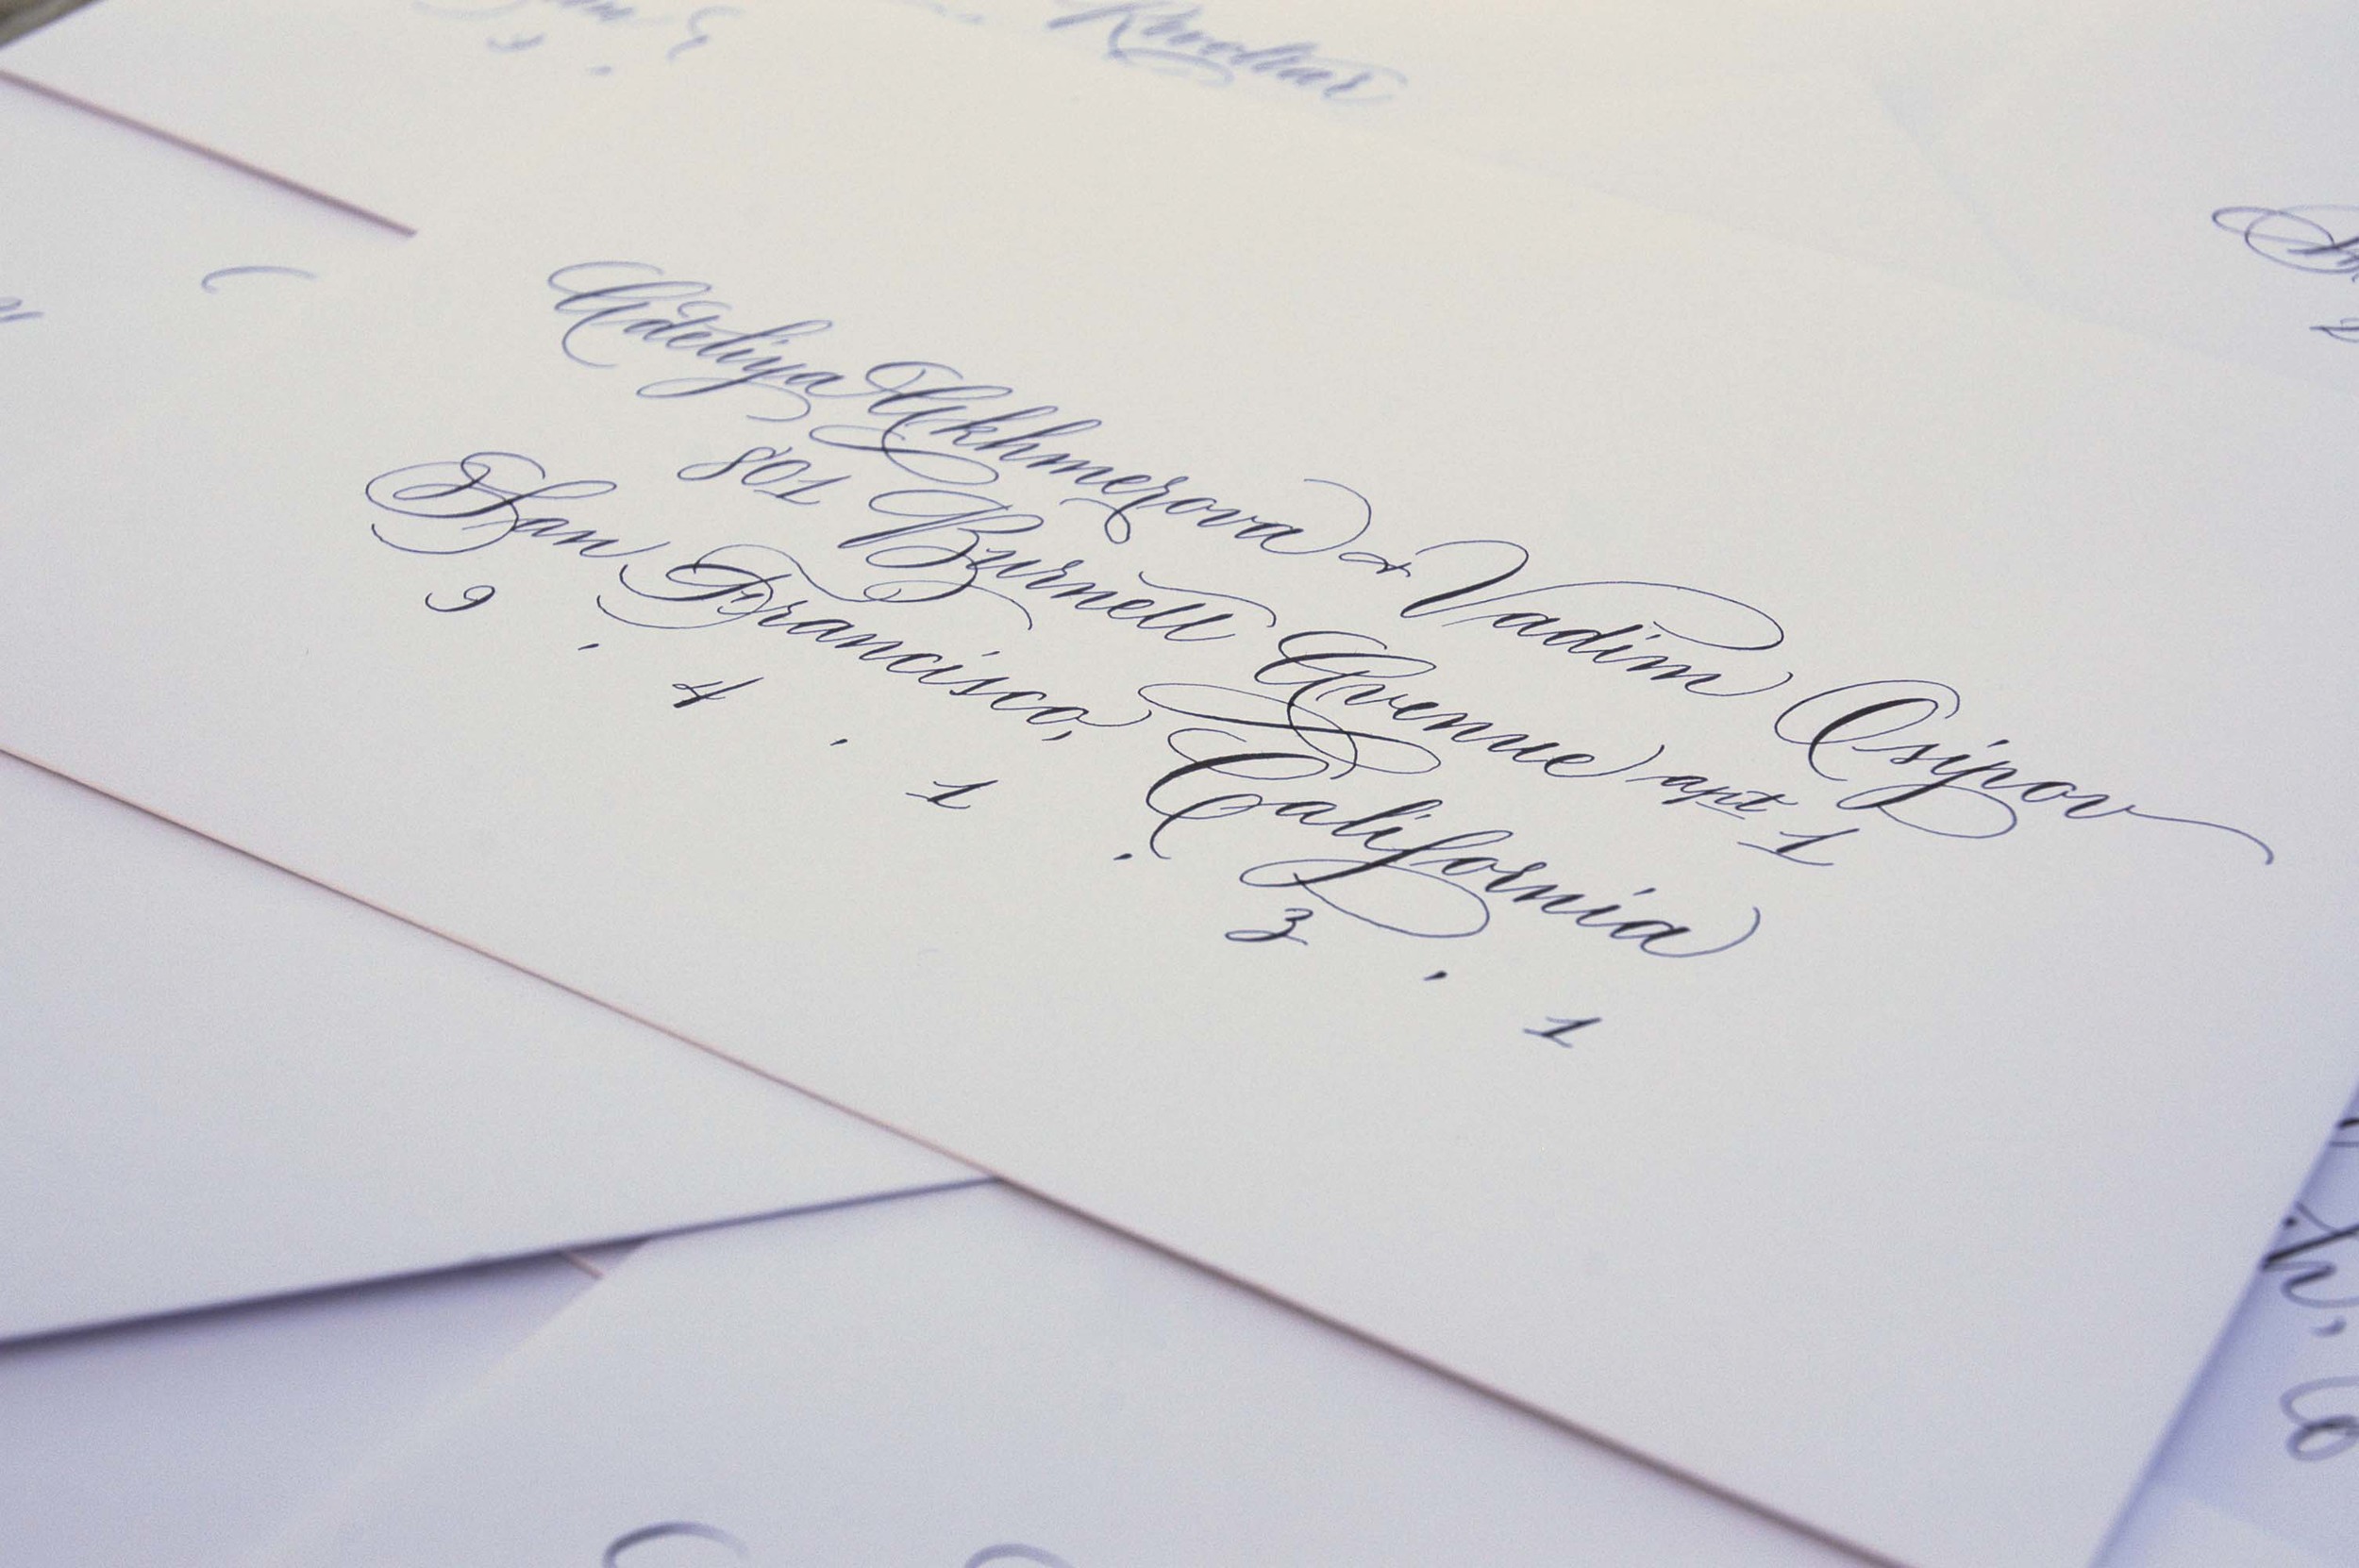 Adeliya Akhmerova & Vadim Osipov
801 Burnett Avenue apt 1
San Francisco, California
9 . 4 . 1 . 3 . 1